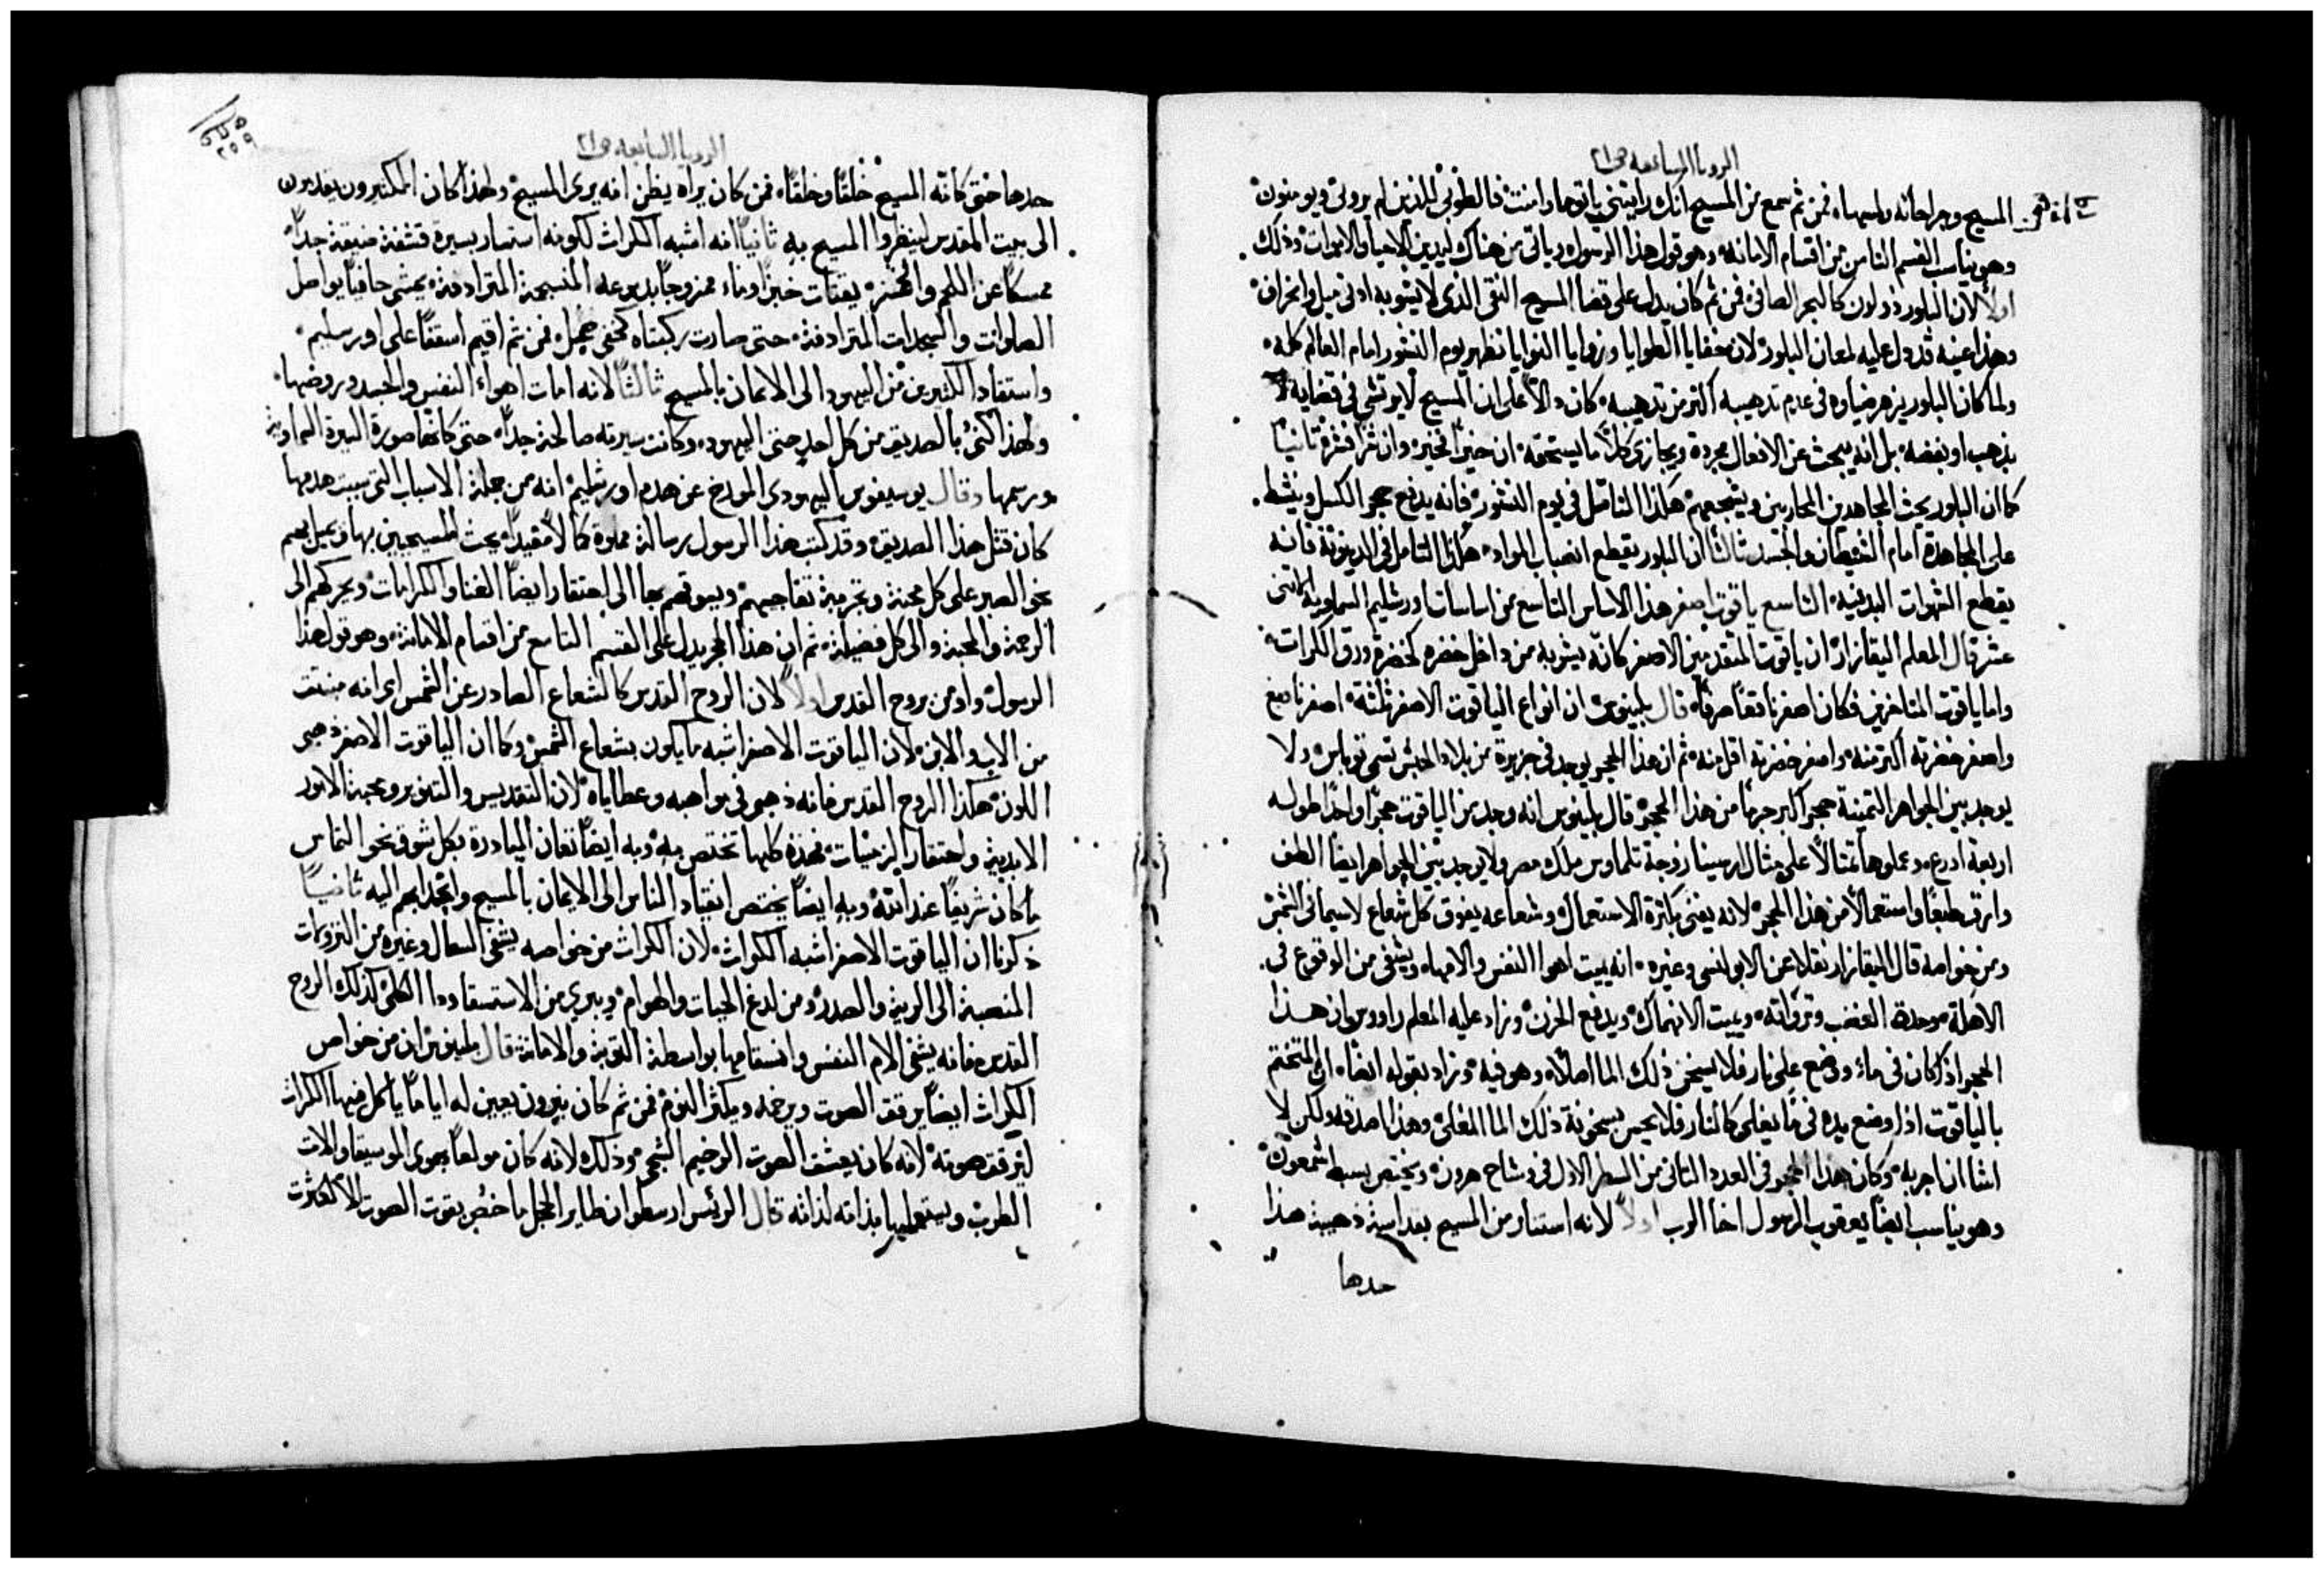 الرويا السابعه ص٢١
المسيح وجراحاته ولمسها، فمن ثم سمع من المسيح انك رايتني ياتوما وامنت فالطوبى للذين لم يروني ويومنون
وهو يناسب القسم الثامن من اقسام الامانه وهو قول هذا الرسول وياتي من هناك ليدين الاحيا والاموات وذلك
اولاً لان البلور ذو لون كالبحر الصافي فمن ثم كان يدل على قضا المسيح النقي الذي لا يشوبه ادنى ميل وانحراف
وهذا عينه قد دل عليه لمعان البلور لان خفايا الطوايا وزوايا النوايا تظهر يوم النشور امام العالم كله
ولما كان البلور يزهر ضياوه في عدم تذهيبه اكثر من تذهيبه كان دالاً على ان المسيح لا يرتشي في قضايه لا
بذهب او بفضه بل انه يبحث عن الافعال مجردة ويجازي كلاً ما يستحقه ان خيراً فخير وان شراً فشر ثانياً
كما ان البلور يحث المجاهدين المحاربين ويشجعهم هكذا التامل في يوم النشور فانه يدفع عجر الكسل وينشط
على المجاهدة امام الشيطان والجسد ثالثاً ان البلور يقطع انصباب المواد هكذا التامل في الدينونة فانه
يقطع الشهوات البدنية التاسع ياقوت اصفر هذا الاساس التاسع من اساسات اورشليم السماوية الاثني
عشر قال المعلم البقازار ان ياقوت المتقدمين الاصفر كانه يشوبه من داخل خضره كخضرة ورق الكراث
واما ياقوت المتاخرين فكان اصفر ناقعاً صرفاً قال بلينوس ان انواع الياقوت الاصفر ثلثة اصفر ناقع
واصفر خضرته اكثر منه واصفر خضرته اقل منه ثم ان هذا الحجر يوجد في جزيرة من بلاد الحبش تسمى توباس ولا
يوجد بين الجواهر الثمينة حجر اكبر جرماً من هذا الحجر قال بلينوس انه وجد من الياقوت حجراً واحداً طوله
اربعة ادرع وعملوها تمثالاً على مثال ارسينا زوجة تلماوس ملك مصر ولا يوجد بين الجواهر ايضاً الطف
وارق طبعاً واستعمالاً من هذا الحجر لانه يفنى بكثرة الاستعمال وشعاعه يفوق كل شعاع لاسيما في الشمس
ومن خواصه قال البقازار نقلاً عن الابولنسي وغيره انه يميت اهوا النفس والامها ويشفي من الوقوع في
الاهلة وحدة الغضب وتوراته ويميت الانهماك ويدفع الحزن وزاد عليه المعلم راووس ان هذا
الحجر اذا كان في ماء ووضع على نار فلا يسخن ذلك الما اصلاً وهو فيه وزاد بقوله ايضاً ان المتختم
بالياقوت اذا وضع يده في ما يغلي كالنار فلا يحس بسخونة ذلك الما المغلي وهذا اصدقه ولكن لا
اشا ان اجربه وكان هذا الحجر في العدد الثاني من السطر الاول في وشاح هرون ويختص بسبط شمعون
وهو يناسب ايضاً يعقوب الرسول اخا الرب اولاً لانه استنار من المسيح بقداسة ذهبية هذا
حدها
الرويا السابعه ص٢١
حدها حتى كانه المسيح خلقاً وخلقاً، فمن كان يراه يظن انه يرى المسيح ولهذا كان الكثيرون يفدون
الى بيت المقدس لينظروا المسيح به ثانياً انه اشبه الكراث لكونه استسار بسيرة قشفة ضيقة جداً
ممسكاً عن اللحم والخمر يقتات خبزاً وماء ممزوجاً بدموعه المنسجمة المترادفة يمشي حافياً يواصل
الصلوات والسجدات المترادفة حتى صارت ركبتاه كخفي جمل فمن ثم اقيم اسقفاً على اورسليم
واستفاد الكثيرين من اليهود الى الايمان بالمسيح ثالثاً لانه امات اهواء النفس والجسد وروضها
ولهذا كني بالصديق من كل احد حتى اليهود وكانت سيرته صالحة جداً حتى كانها صورة السيرة السماوية
ورسمها وقال يوسيفوس اليهودي المورخ عن هدم اورشليم انه من جملة الاسباب التي سببت هدمها
كان قتل هذا الصديق وقد كتب هذا الرسول رسالة مملوة كمالاً مفيداً يحث المسيحيين بها ويميل بهم
نحو الصبر على كل محنة وتجربة تفاجيهم ويسوقهم بها الى احتقار ايضاً الغنا والكرامات ويحركهم الى
الرحمة والمحبة والى كل فضيلة ثم ان هذا الحجر يدل على القسم التاسع من اقسام الامانة وهو قول هذا
الرسول واومن بروح القدس اولاً لان الروح القدس كالشعاع الصادر عن الشمس اي انه منبثق
من الاب والابن لان الياقوت الاصفر اشبه ما يكون بشعاع الشمس وكما ان الياقوت الاصفر ذهبي
اللون هكذا الروح القدس فانه ذهبي في مواهبه وعطاياه لان التقديس والتنوير ومحبة الامور
الابدية واحتقار الزمنيات فهذه كلها تختص به وبه ايضاً تقان المبادرة بكل شوق نحو التماس
ما كان شريفاً عند الله وبه ايضاً يختص انقياد الناس الى الايمان بالمسيح وانجذابهم اليه ثانياً
ذكرنا ان الياقوت الاصفر اشبه الكراث لان الكراث من خواصه يشفي السعال وغيره من النزولات
المنصبة الى الرية والصدر ومن لدغ الحيات والهوام ويبري من الاستسقا ودا الكلى كذلك الروح
القدس فانه يشفي الام النفس واسقامها بواسطة التوبة والامانة قال بلينوس ان من خواص
الكراث ايضاً يرقق الصوت ويرخمه ويكثر النوم فمن ثم كان نيرون يعين له اياماً ياكل فيها الكراث
ليترقق صوته لانه كان يعشق الصوت الرخيم الشجي وذلك لانه كان مولعاً بهوى الموسيقا والات
الطرب ويستعملها بذاته لذاته قال الرئيس ارسطو ان طاير الحجل ما خص بقوت الصوت الا لكثرت